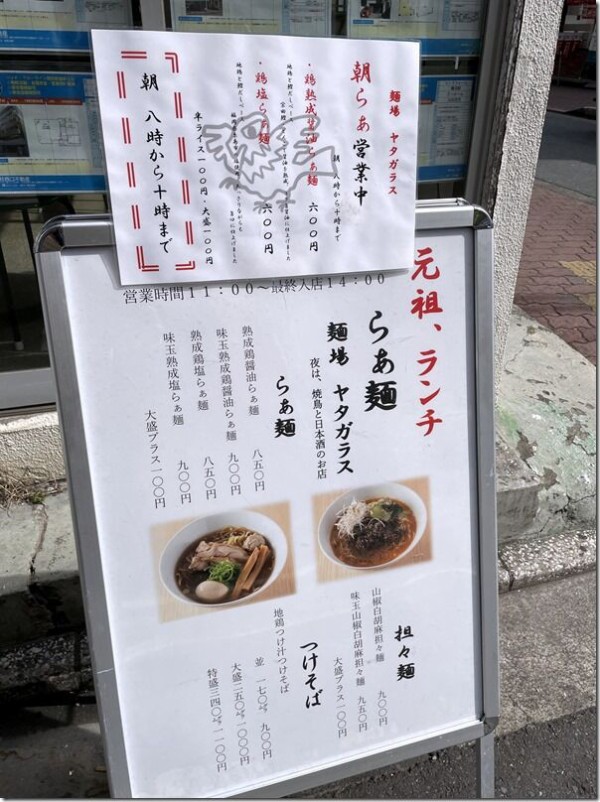 麺場 ヤタガラス
朝らぁ営業中
朝、八時から十時まで
・鶏熟成醤油らぁ麺 六〇〇円
・鶏塩らぁ麺 六〇〇円
半ライス一〇〇円・大盛一〇〇円
朝 八時から十時まで
営業時間11:00～最終入店14:00
元祖、ランチ
らぁ麺
麺場 ヤタガラス
夜は、焼鳥と日本酒のお店
らぁ麺
熟成鶏醤油らぁ麺 八五〇円
味玉熟成鶏醤油らぁ麺 九〇〇円
熟成鶏塩らぁ麺 八五〇円
味玉熟成塩らぁ麺 九〇〇円
大盛プラス一〇〇円
担々麺
山椒白胡麻担々麺 九〇〇円
味玉山椒白胡麻担々麺 九五〇円
大盛プラス一〇〇円
つけそば
地鶏つけ汁つけそば
並 一七〇㌘ 九〇〇円
大盛二五〇㌘一〇〇〇円
特盛三四〇㌘一一〇〇円